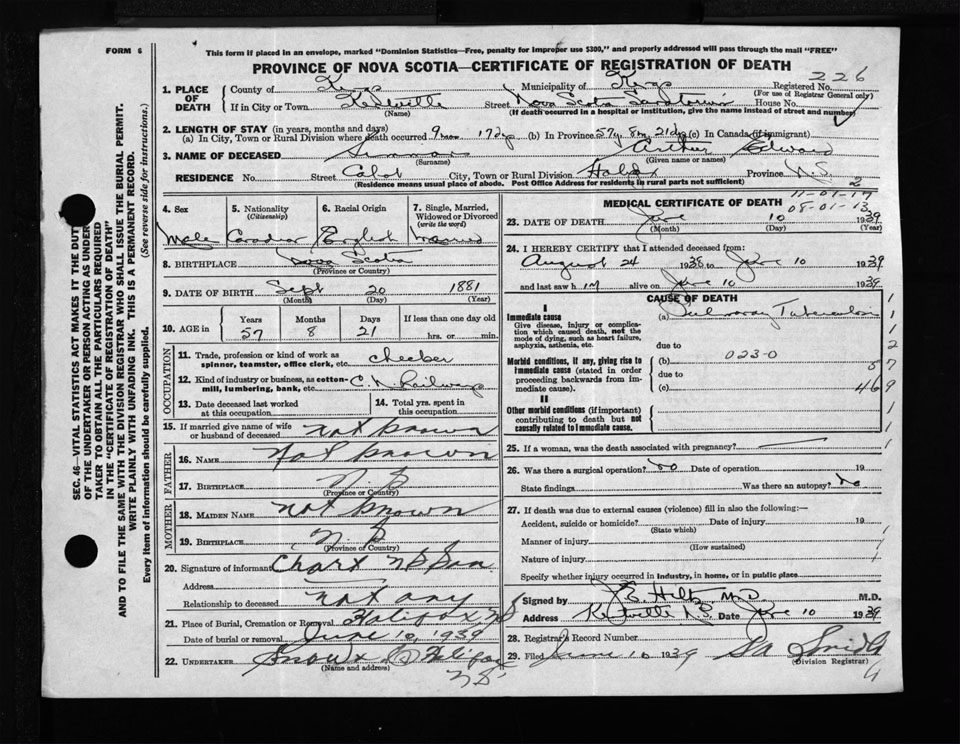 FORM 6
This form if placed in an envelope, marked "Dominion Statistics—Free, penalty for improper use $300," and properly addressed will pass through the mail "FREE"
PROVINCE OF NOVA SCOTIA—CERTIFICATE OF REGISTRATION OF DEATH
226
1. PLACE OF DEATH
County of Kings Municipality of Kings Registered No.
(For use of Registrar General only)
If in City or Town Kentville Street Nova Scotia Sanatorium House No.
(Name) (If death occurred in a hospital or institution, give the name instead of street and number)
2. LENGTH OF STAY (in years, months and days)
(a) In City, Town or Rural Division where death occurred 9 mos 17 dys (b) In Province 57y 8m 21dys (c) In Canada (if immigrant)
3. NAME OF DECEASED Arthur Edward
(Surname) (Given name or names)
RESIDENCE No. Street Cabot City, Town or Rural Division Halifax Province N.S. 2
(Residence means usual place of abode. Post Office Address for residents in rural parts not sufficient)
4. Sex 5. Nationality (Citizenship) 6. Racial Origin 7. Single, Married, Widowed or Divorced (write the word)
Male Canadian English Married
8. BIRTHPLACE Nova Scotia
(Province or Country)
9. DATE OF BIRTH Sept 20 1881
(Month) (Day) (Year)
10. AGE in Years Months Days If less than one day old
57 8 21 hrs. or min.
OCCUPATION
11. Trade, profession or kind of work as spinner, teamster, office clerk, etc. Checker
12. Kind of industry or business, as cotton-mill, lumbering, bank, etc. C. N. Railways
13. Date deceased last worked at this occupation
14. Total yrs. spent in this occupation
15. If married give name of wife or husband of deceased not known
FATHER
16. NAME Not known
17. BIRTHPLACE N S
(Province or Country)
MOTHER
18. MAIDEN NAME not known
19. BIRTHPLACE N S
(Province of Country)
20. Signature of informant Chart N S San
Address
Relationship to deceased not any
21. Place of Burial, Cremation or Removal Halifax, NS
Date of burial or removal June 10, 1939
22. UNDERTAKER Snow & Co Halifax
(Name and address)
NS
MEDICAL CERTIFICATE OF DEATH
11-01-17
08-01-13
23. DATE OF DEATH June 10 1939
(Month) (Day) (Year)
24. I HEREBY CERTIFY that I attended deceased from:
August 24 1938 to June 10 1939
and last saw him alive on June 10 1939
CAUSE OF DEATH
I
Immediate cause (a) Pulmonary Tuberculosis
Give disease, injury or complication which caused death, not the mode of dying, such as heart failure, asphyxia, asthenia, etc.
due to
Morbid conditions, if any, giving rise to immediate cause (stated in order proceeding backwards from immediate cause).
(b) 023-0
due to
(c)
II
Other morbid conditions (if important) contributing to death but not causally related to immediate cause.
1
1
1
2
57
469
1
1
1
25. If a woman, was the death associated with pregnancy?
26. Was there a surgical operation? No Date of operation 19
State findings Was there an autopsy? No
27. If death was due to external causes (violence) fill in also the following:—
Accident, suicide or homicide? Date of injury 19
(State which)
Manner of injury
(How sustained)
Nature of injury
Specify whether injury occurred in industry, in home, or in public place
Signed by M.D. M.D.
Address Kentville N.S. Date June 10 1939
28. Registrar's Record Number
29. Filed June 10 1939
(Division Registrar)
4
SEC. 46—VITAL STATISTICS ACT MAKES IT THE DUTY
OF THE UNDERTAKER OR PERSON ACTING AS UNDER
TAKER TO OBTAIN ALL THE PARTICULARS REQUIRED
IN THE "CERTIFICATE OF REGISTRATION OF DEATH"
AND TO FILE THE SAME WITH THE DIVISION REGISTRAR WHO SHALL ISSUE THE BURIAL PERMIT.
WRITE PLAINLY WITH UNFADING INK. THIS IS A PERMANENT RECORD.
Every item of information should be carefully supplied. (See reverse side for instructions.)